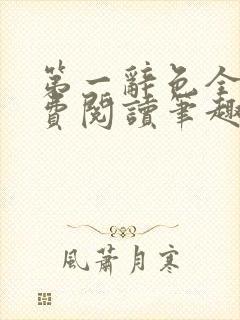 第一辭色全
費閱讀筆趣
風蕭月寒